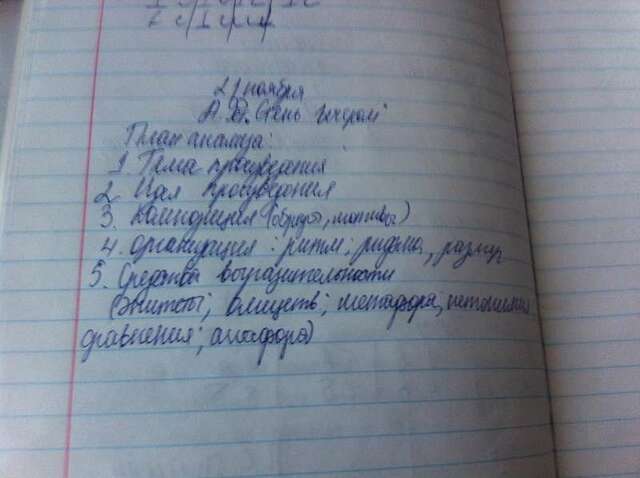 21 ноября
А. Фет. Степь вечером
План анализа:
1. Тема произведения
2. Идея произведения
3. Композиция (образы, мотивы)
4. организация: ритм; рифма, размер
5. Средства выразительности
(эпитеты; олицетв; метафора,
сравнения; анафоры)